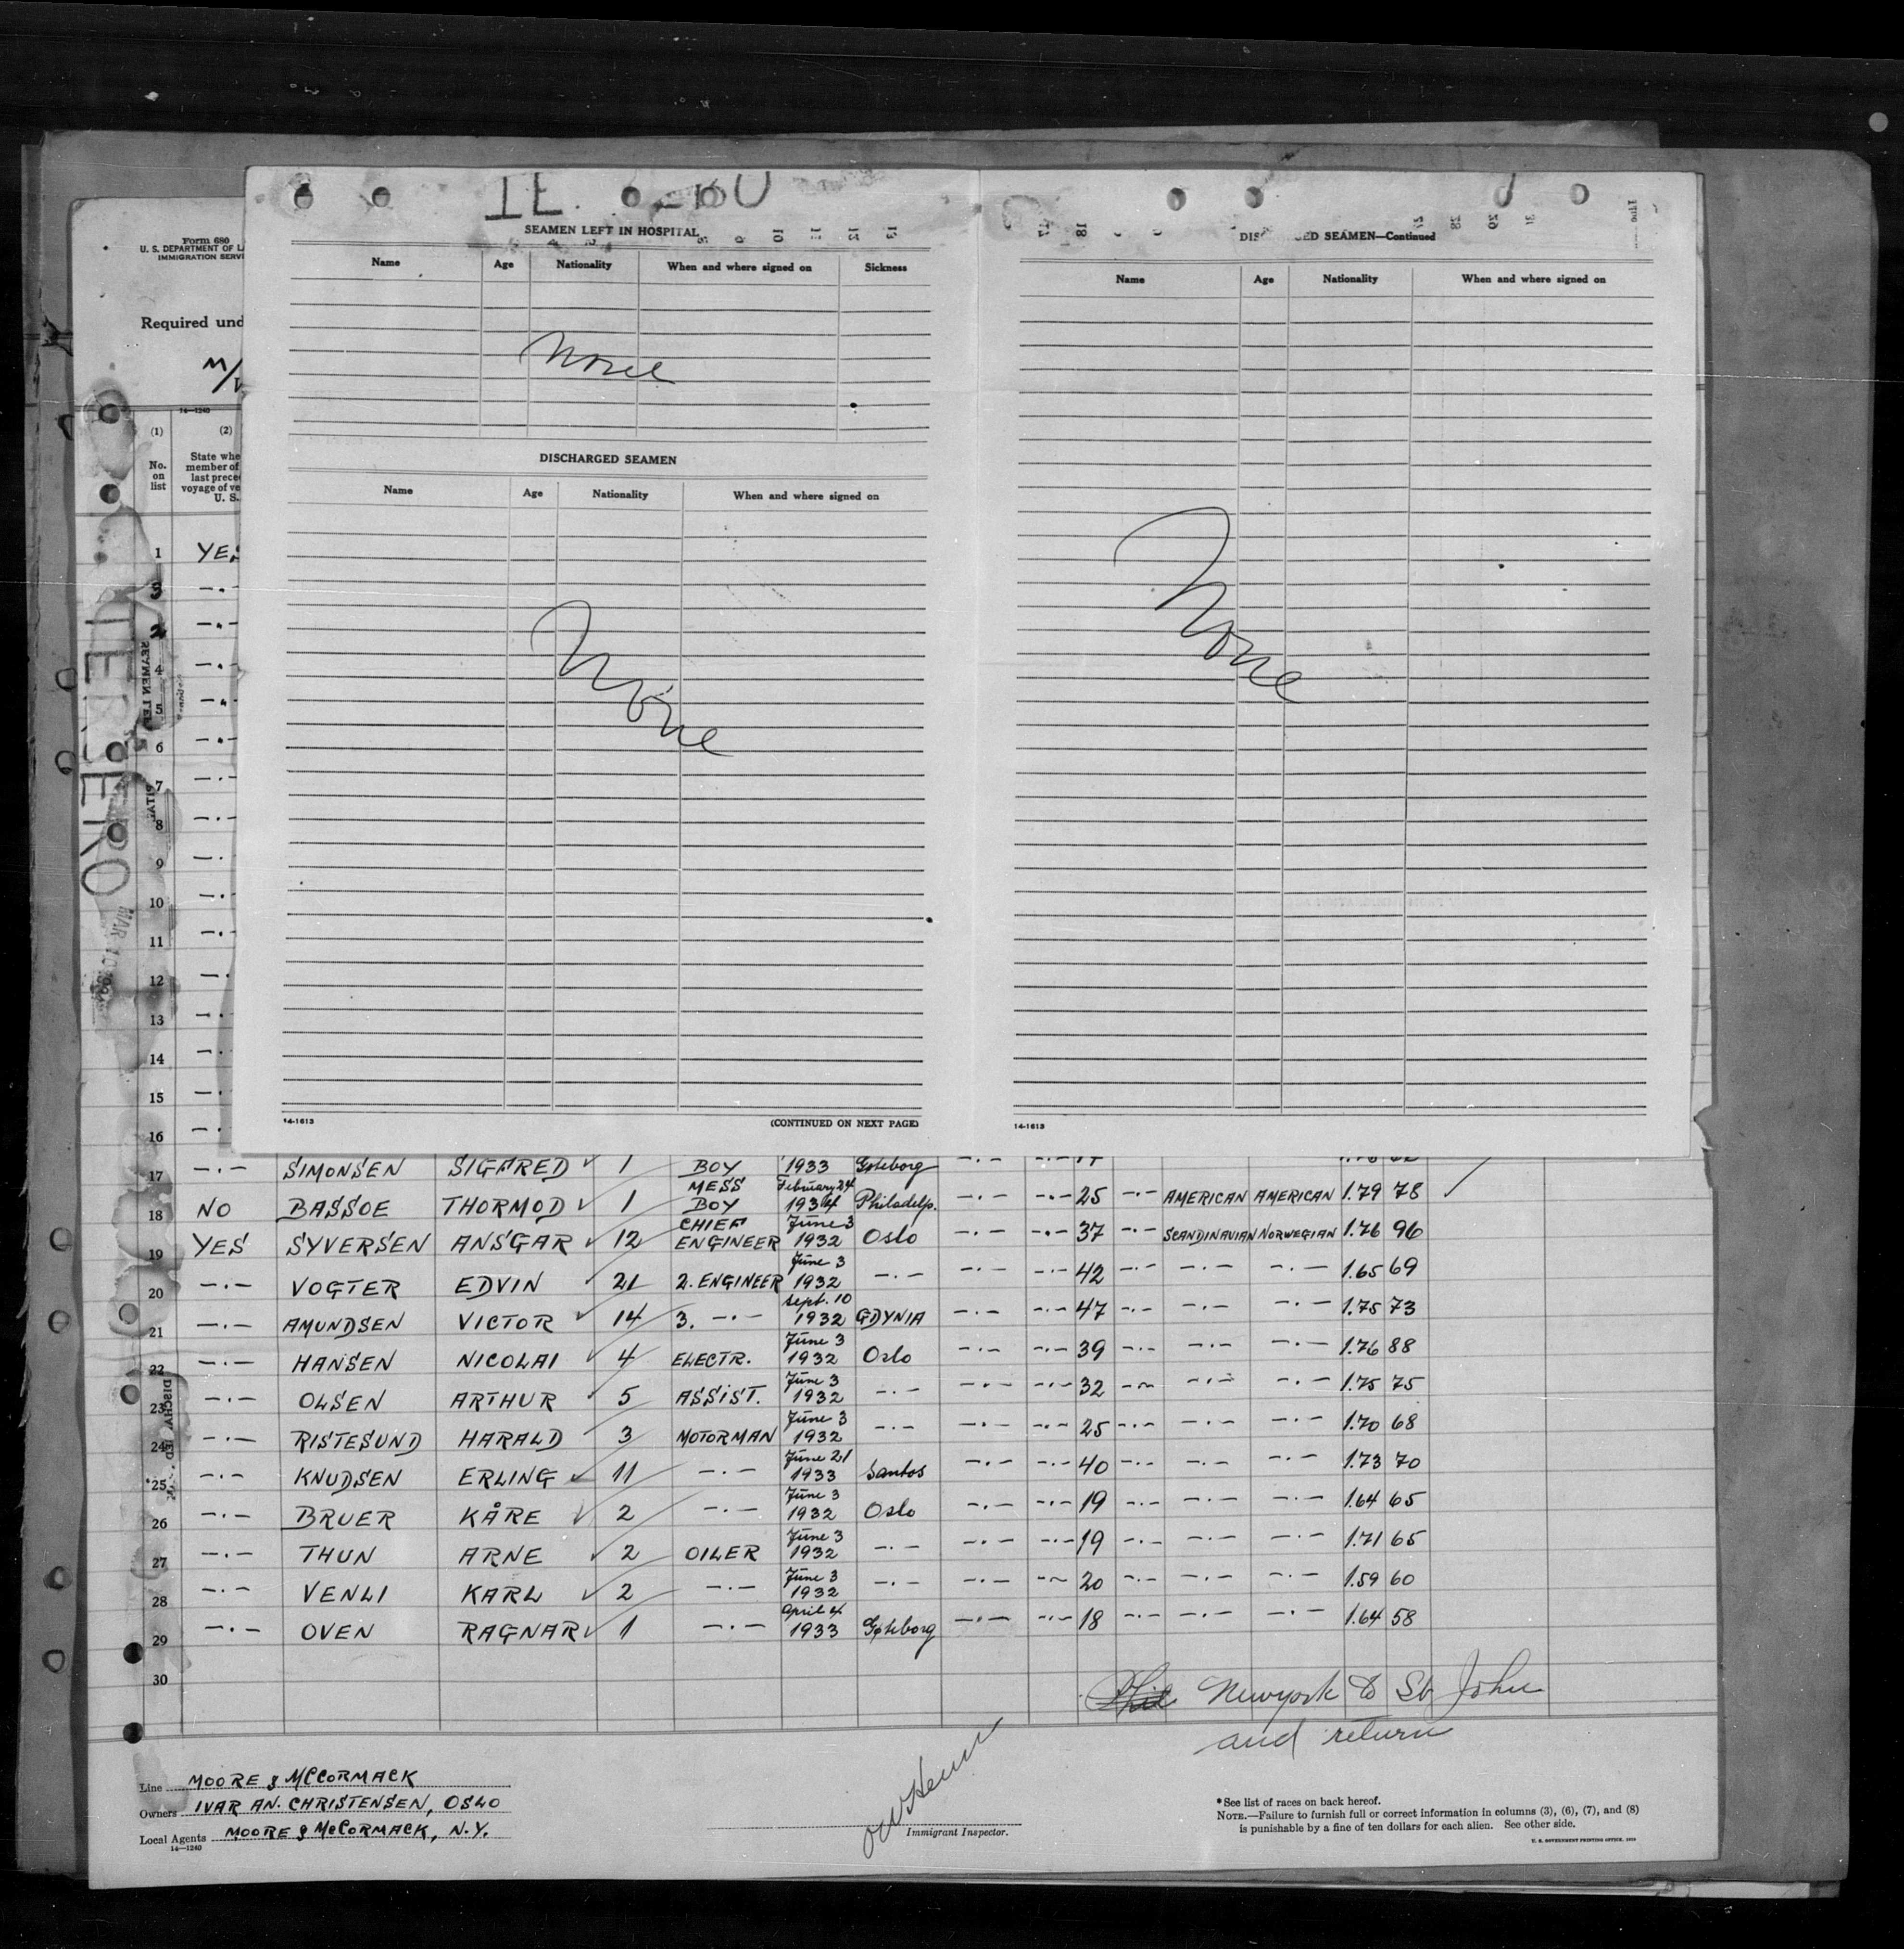 SEAMEN LEFT IN HOSPITAL
Name Age Nationality When and where signed on Sickness
None
DISCHARGED SEAMEN
Name Age Nationality When and where signed on
None
14-1613 (CONTINUED ON NEXT PAGE)
SEAMEN—Continued
Name Age Nationality When and where signed on
None
14-1613
Form 680
U. S. DEPARTMENT OF
IMMIGRATION
Required
14—1240
(1) (2)
No. on list
State
member of
last
voyage of
U. S.
1 YES
3 -·-
2 -·-
4 -·-
5 -·-
6 -·-
7 -·-
8 -·-
9 -·-
10 -·-
11 -·-
12 -·-
13 -·-
14 -·-
15 -·-
16 -·-
17 -·- SIMONSEN SIGFRED ✓ 1 BOY 1933 Goteborg -·- -·-
18 NO BASSOE THORMOD ✓ 1 MESS BOY February 24 1934 Philadelp. -·- -·- 25 -·- AMERICAN AMERICAN 1.79 78 ✓
19 YES SYVERSEN ANSGAR ✓ 12 CHIEF ENGINEER June 3 1932 Oslo -·- -·- 37 -·- SCANDINAVIAN NORWEGIAN 1.76 96
20 -·- VOGTER EDVIN ✓ 21 2. ENGINEER June 3 1932 -·- -·- -·- 42 -·- -·- -·- 1.65 69
21 -·- AMUNDSEN VICTOR ✓ 14 3. -·- Sept. 10 1932 GDYNIA -·- -·- 47 -·- -·- -·- 1.75 73
22 -·- HANSEN NICOLAI ✓ 4 ELECTR. June 3 1932 Oslo -·- -·- 39 -·- -·- -·- 1.76 88
23 -·- OLSEN ARTHUR ✓ 5 ASSIST. June 3 1932 -·- -·- -·- 32 -·- -·- -·- 1.75 75
24 -·- RISTESUND HARALD ✓ 3 MOTORMAN June 3 1932 -·- -·- -·- 25 -·- -·- -·- 1.70 68
25 -·- KNUDSEN ERLING ✓ 11 -·- June 21 1933 Santos -·- -·- 40 -·- -·- -·- 1.73 70
26 -·- BRUER KÅRE ✓ 2 -·- June 3 1932 Oslo -·- -·- 19 -·- -·- -·- 1.64 65
27 -·- THUN ARNE ✓ 2 OILER June 3 1932 -·- -·- -·- 19 -·- -·- -·- 1.71 65
28 -·- VENLI KARL ✓ 2 -·- June 3 1932 -·- -·- -·- 20 -·- -·- -·- 1.59 60
29 -·- OVEN RAGNAR ✓ 1 -·- April 4 1933 Gøteborg -·- -·- 18 -·- -·- -·- 1.64 58
30
Newyork to St John
and return
Line MOORE & McCORMACK
Owners IVAR AN. CHRISTENSEN, OSLO
Local Agents MOORE & McCORMACK, N.Y.
14—1240
Immigrant Inspector.
*See list of races on back hereof.
NOTE.—Failure to furnish full or correct information in columns (3), (6), (7), and (8)
is punishable by a fine of ten dollars for each alien. See other side.
U. S. GOVERNMENT PRINTING OFFICE.